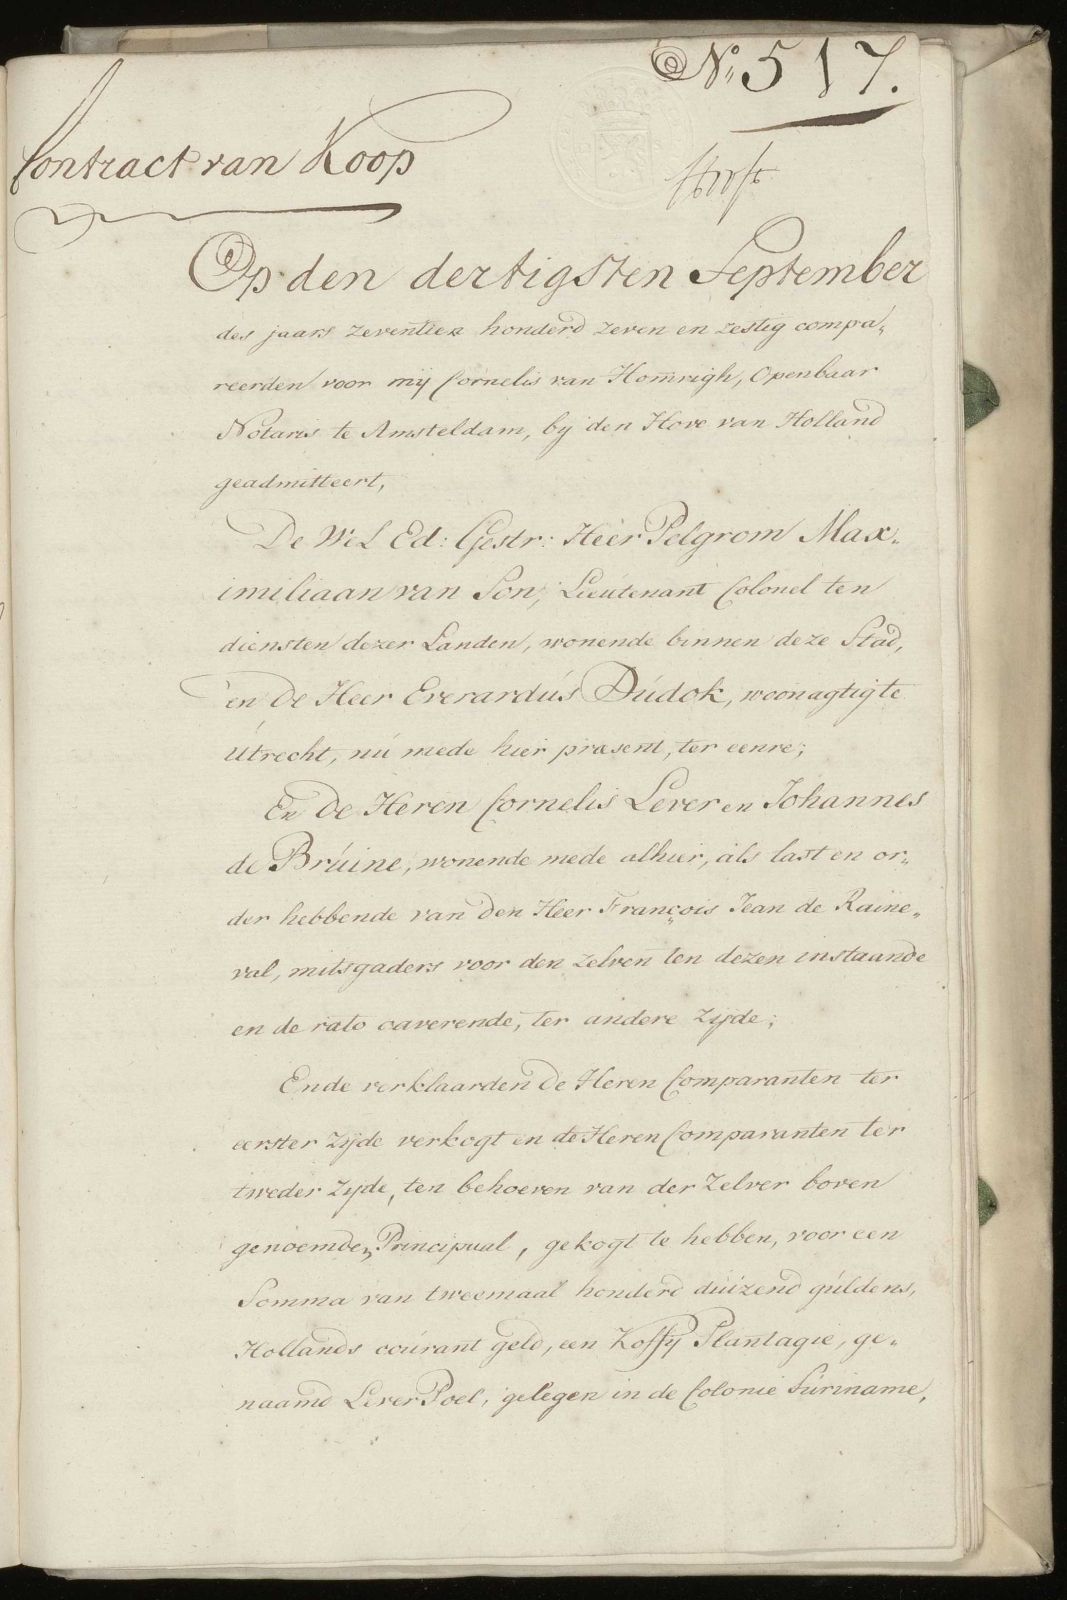 No 517.
Contract van Koop
Op den dertigsten September
des jaars zeventien honderd zeven en zestig compa„
reerden voor mij Cornelis van Hom̄righ, Openbaar
Notaris te Amsteldam, bij den Hove van Holland
geadmitteert,
De Wel Ed: Gestr: Heer Pelgrom Max„
imiliaan van Son, Lieutenant Colonel ten
diensten dezer Landen, wonende binnen deze Stad,
en De Heer Everardús Dúdok, woonagtig te
Utrecht, nú mede hier præsent, ter eenre;
En De Heren Cornelis Lever en Johannes
de Brúine, wonende mede alhier, als last en or„
der hebbende van den Heer François Jean de Raine„
val, mitsgaders voor den zelven ten dezen instaande
en de rato caverende, ter andere zijde;
Ende verklaarden De Heren Comparanten ter
eerster zijde verkogt en de Heren Comparanten ter
tweder zijde, ten behoeven van der zelver boven
genoemden Principaal, gekogt te hebben, voor een
Somma van tweemaal honderd dúizend gúldens,
Hollands coúrant geld, een Koffij Plantagie, ge„
naamd LeverPoel, gelegen in de Colonie Súriname,